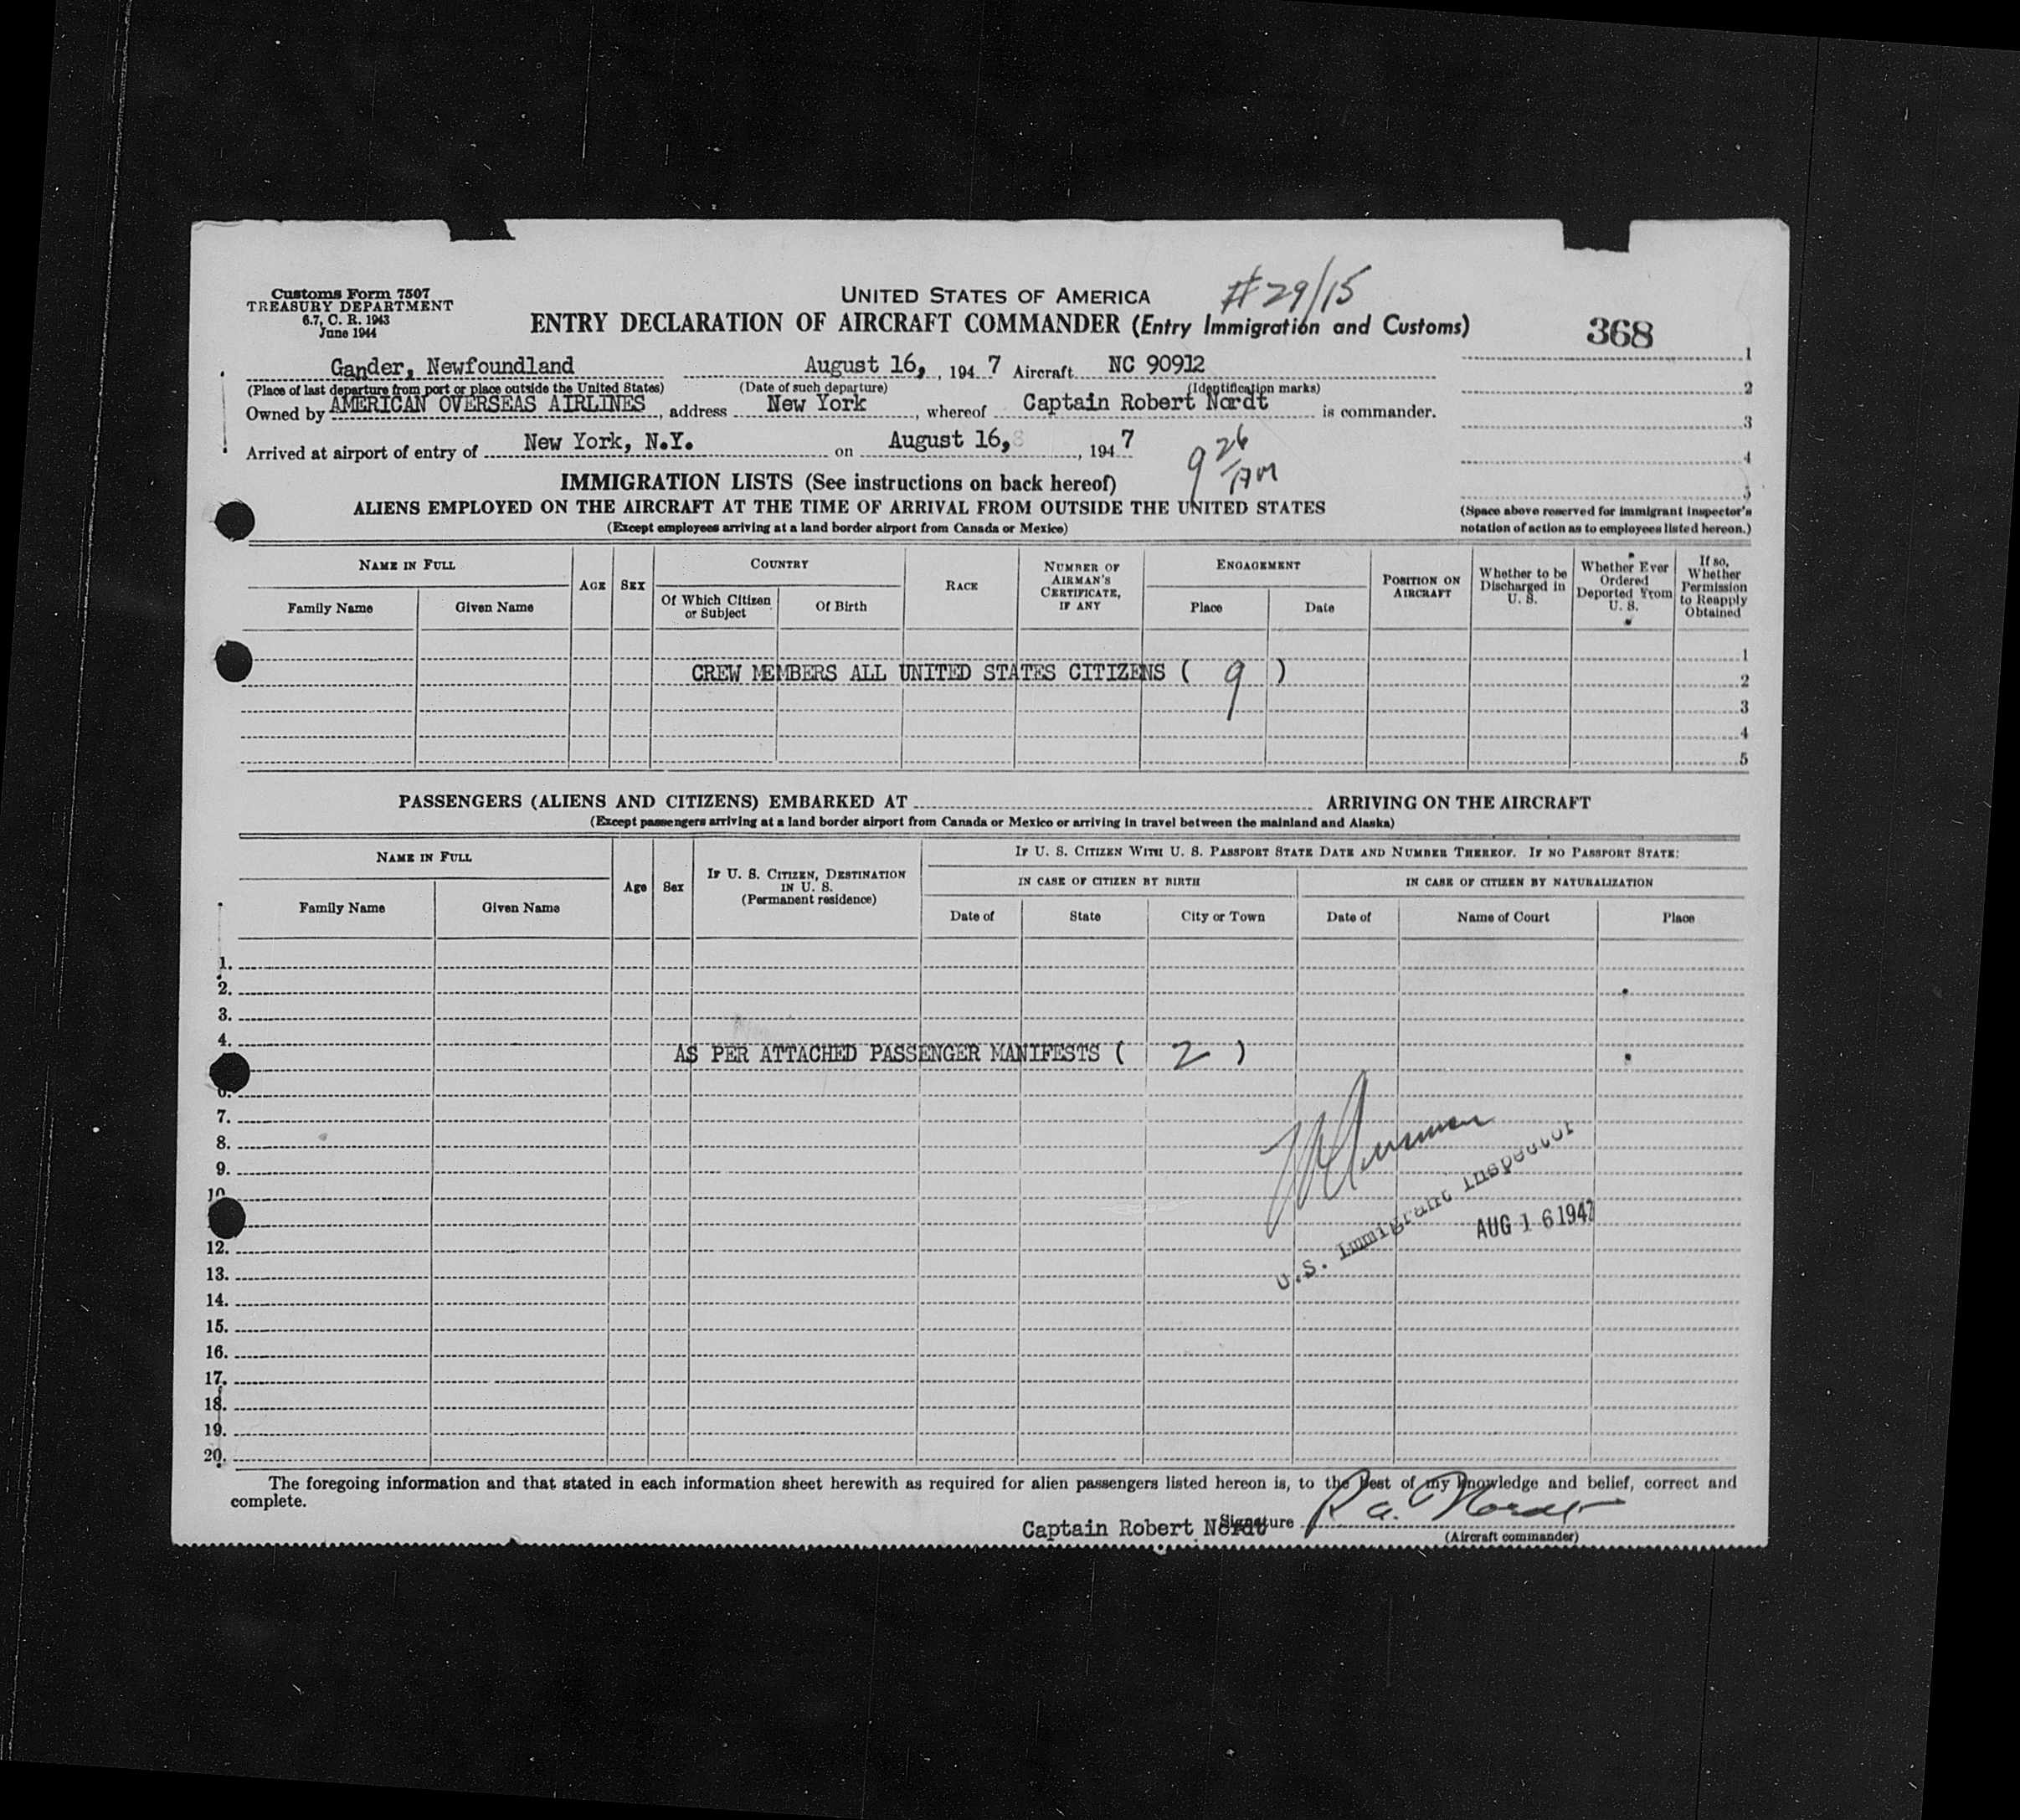 Customs Form 7507
TREASURY DEPARTMENT
6.7, C. R. 1943
June 1944
UNITED STATES OF AMERICA
#29/15
ENTRY DECLARATION OF AIRCRAFT COMMANDER (Entry Immigration and Customs)
368
Gander, Newfoundland August 16, , 194 7 Aircraft NC 90912
(Place of last departure from port or place outside the United States) (Date of such departure) (Identification marks)
Owned by AMERICAN OVERSEAS AIRLINES , address New York , whereof Captain Robert Nordt is commander.
Arrived at airport of entry of New York, N.Y. on August 16, , 194 7
9 26 AM
1
2
3
4
5
(Space above reserved for immigrant inspector's
notation of action as to employees listed hereon.)
IMMIGRATION LISTS (See instructions on back hereof)
ALIENS EMPLOYED ON THE AIRCRAFT AT THE TIME OF ARRIVAL FROM OUTSIDE THE UNITED STATES
(Except employees arriving at a land border airport from Canada or Mexico)
NAME IN FULL
Family Name
Given Name
AGE
SEX
COUNTRY
Of Which Citizen
or Subject
Of Birth
RACE
NUMBER OF
AIRMAN'S
CERTIFICATE,
IF ANY
ENGAGEMENT
Place
Date
POSITION ON
AIRCRAFT
Whether to be
Discharged in
U. S.
Whether Ever
Ordered
Deported From
U. S.
If so,
Whether
Permission
to Reapply
Obtained
1
CREW MEMBERS ALL UNITED STATES CITIZENS ( 9 )
2
3
4
5
PASSENGERS (ALIENS AND CITIZENS) EMBARKED AT ARRIVING ON THE AIRCRAFT
(Except passengers arriving at a land border airport from Canada or Mexico or arriving in travel between the mainland and Alaska)
NAME IN FULL
Family Name
Given Name
Age
Sex
IF U. S. CITIZEN, DESTINATION
IN U. S.
(Permanent residence)
IF U. S. CITIZEN WITH U. S. PASSPORT STATE DATE AND NUMBER THEREOF. IF NO PASSPORT STATE:
IN CASE OF CITIZEN BY BIRTH
IN CASE OF CITIZEN BY NATURALIZATION
Date of
State
City or Town
Date of
Name of Court
Place
1.
2.
3.
4.
AS PER ATTACHED PASSENGER MANIFESTS ( 2 )
6.
7.
8.
9.
10
12.
13.
14.
15.
16.
17.
18.
19.
20.
U.S. Immigrant Inspector
AUG 16 1947
The foregoing information and that stated in each information sheet herewith as required for alien passengers listed hereon is, to the best of my knowledge and belief, correct and
complete.
Captain Robert Nordt Signature R a. Nordt
(Aircraft commander)